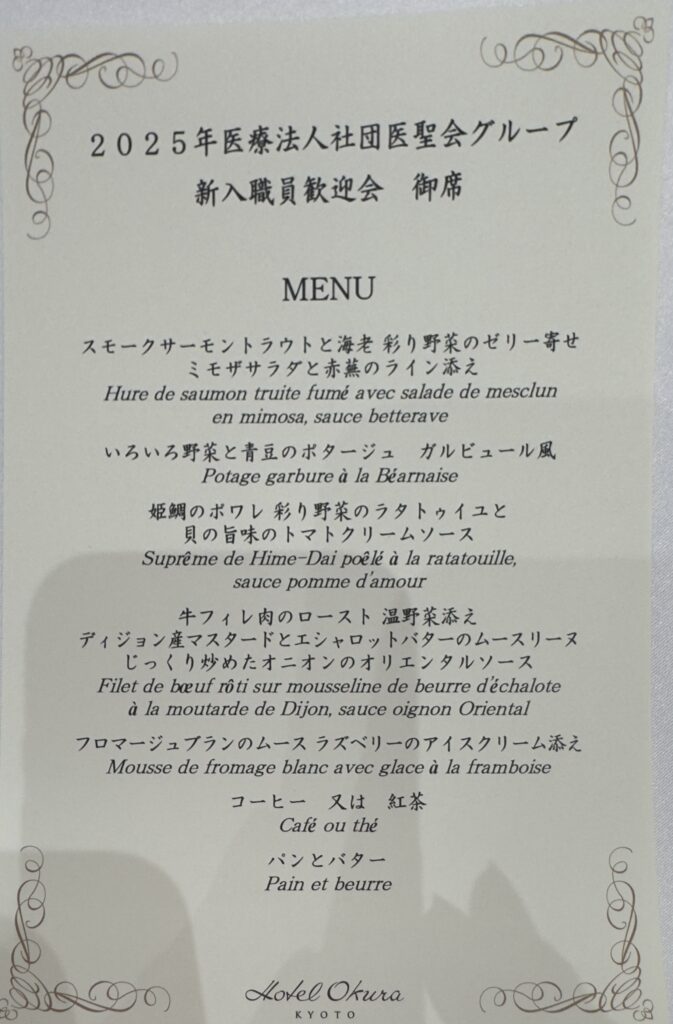 2025年医療法人社団医聖会グループ
新入職員歓迎会　御席
MENU
スモークサーモントラウトと海老 彩り野菜のゼリー寄せ
ミモザサラダと赤蕪のライン添え
Hure de saumon truite fumé avec salade de mesclun
en mimosa, sauce betterave
いろいろ野菜と青豆のポタージュ　ガルビュール風
Potage garbure à la Béarnaise
姫鯛のポワレ 彩り野菜のラタトゥイユと
貝の旨味のトマトクリームソース
Suprême de Hime-Dai poêlé à la ratatouille,
sauce pomme d'amour
牛フィレ肉のロースト 温野菜添え
ディジョン産マスタードとエシャロットバターのムースリーヌ
じっくり炒めたオニオンのオリエンタルソース
Filet de bœuf rôti sur mousseline de beurre d'échalote
à la moutarde de Dijon, sauce oignon Oriental
フロマージュブランのムース ラズベリーのアイスクリーム添え
Mousse de fromage blanc avec glace à la framboise
コーヒー　又は　紅茶
Café ou thé
パンとバター
Pain et beurre
Hotel Okura
KYOTO